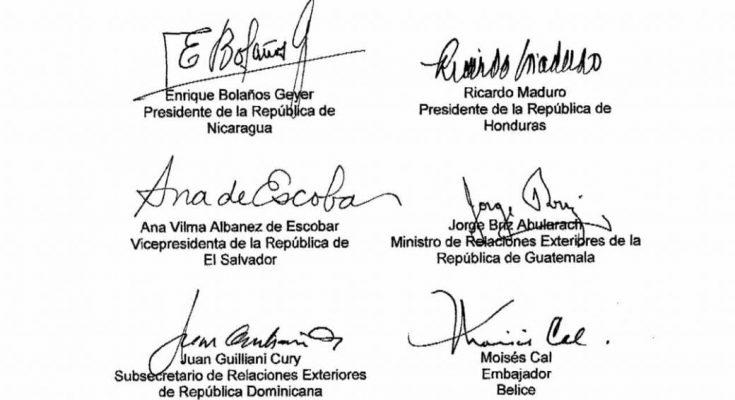 E Bolaños G
Ricardo Maduro
Enrique Bolaños Geyer
Presidente de la República de
Nicaragua
Ricardo Maduro
Presidente de la República de
Honduras
Ana de Escobar
Jorge Briz
Ana Vilma Albanez de Escobar
Vicepresidenta de la República de
El Salvador
Jorge Briz Abularach
Ministro de Relaciones Exteriores de la
República de Guatemala
Juan Guilliani
Cal
Juan Guilliani Cury
Subsecretario de Relaciones Exteriores
de República Dominicana
Moisés Cal
Embajador
Belice